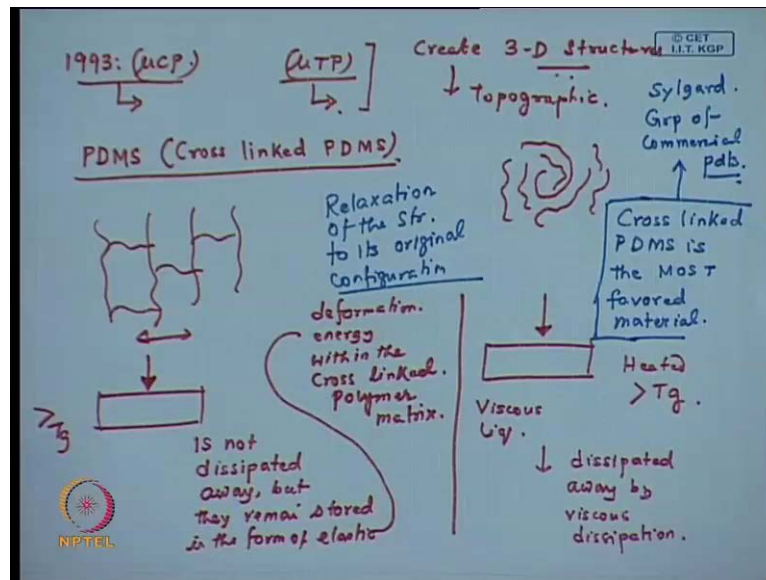 1993: (μCP)
(μTP)
Create 3-D Structures
Topographic.
© CET
I.I.T. KGP
Sylgard.
Grp of
Commercial
pdts.
PDMS (Cross linked PDMS).
Relaxation
of the Str.
to its original
configuratin
Cross linked
PDMS is
the MOST
favored
material.
deformation.
energy
within the
Cross linked
polymer
matrix.
>Tg
Is not
dissipated
away, but
they remai stored
in the form of elastic
Viscous
Liq.
Heated
>Tg.
dissipated
away by
viscous
dissipation.
NPTEL